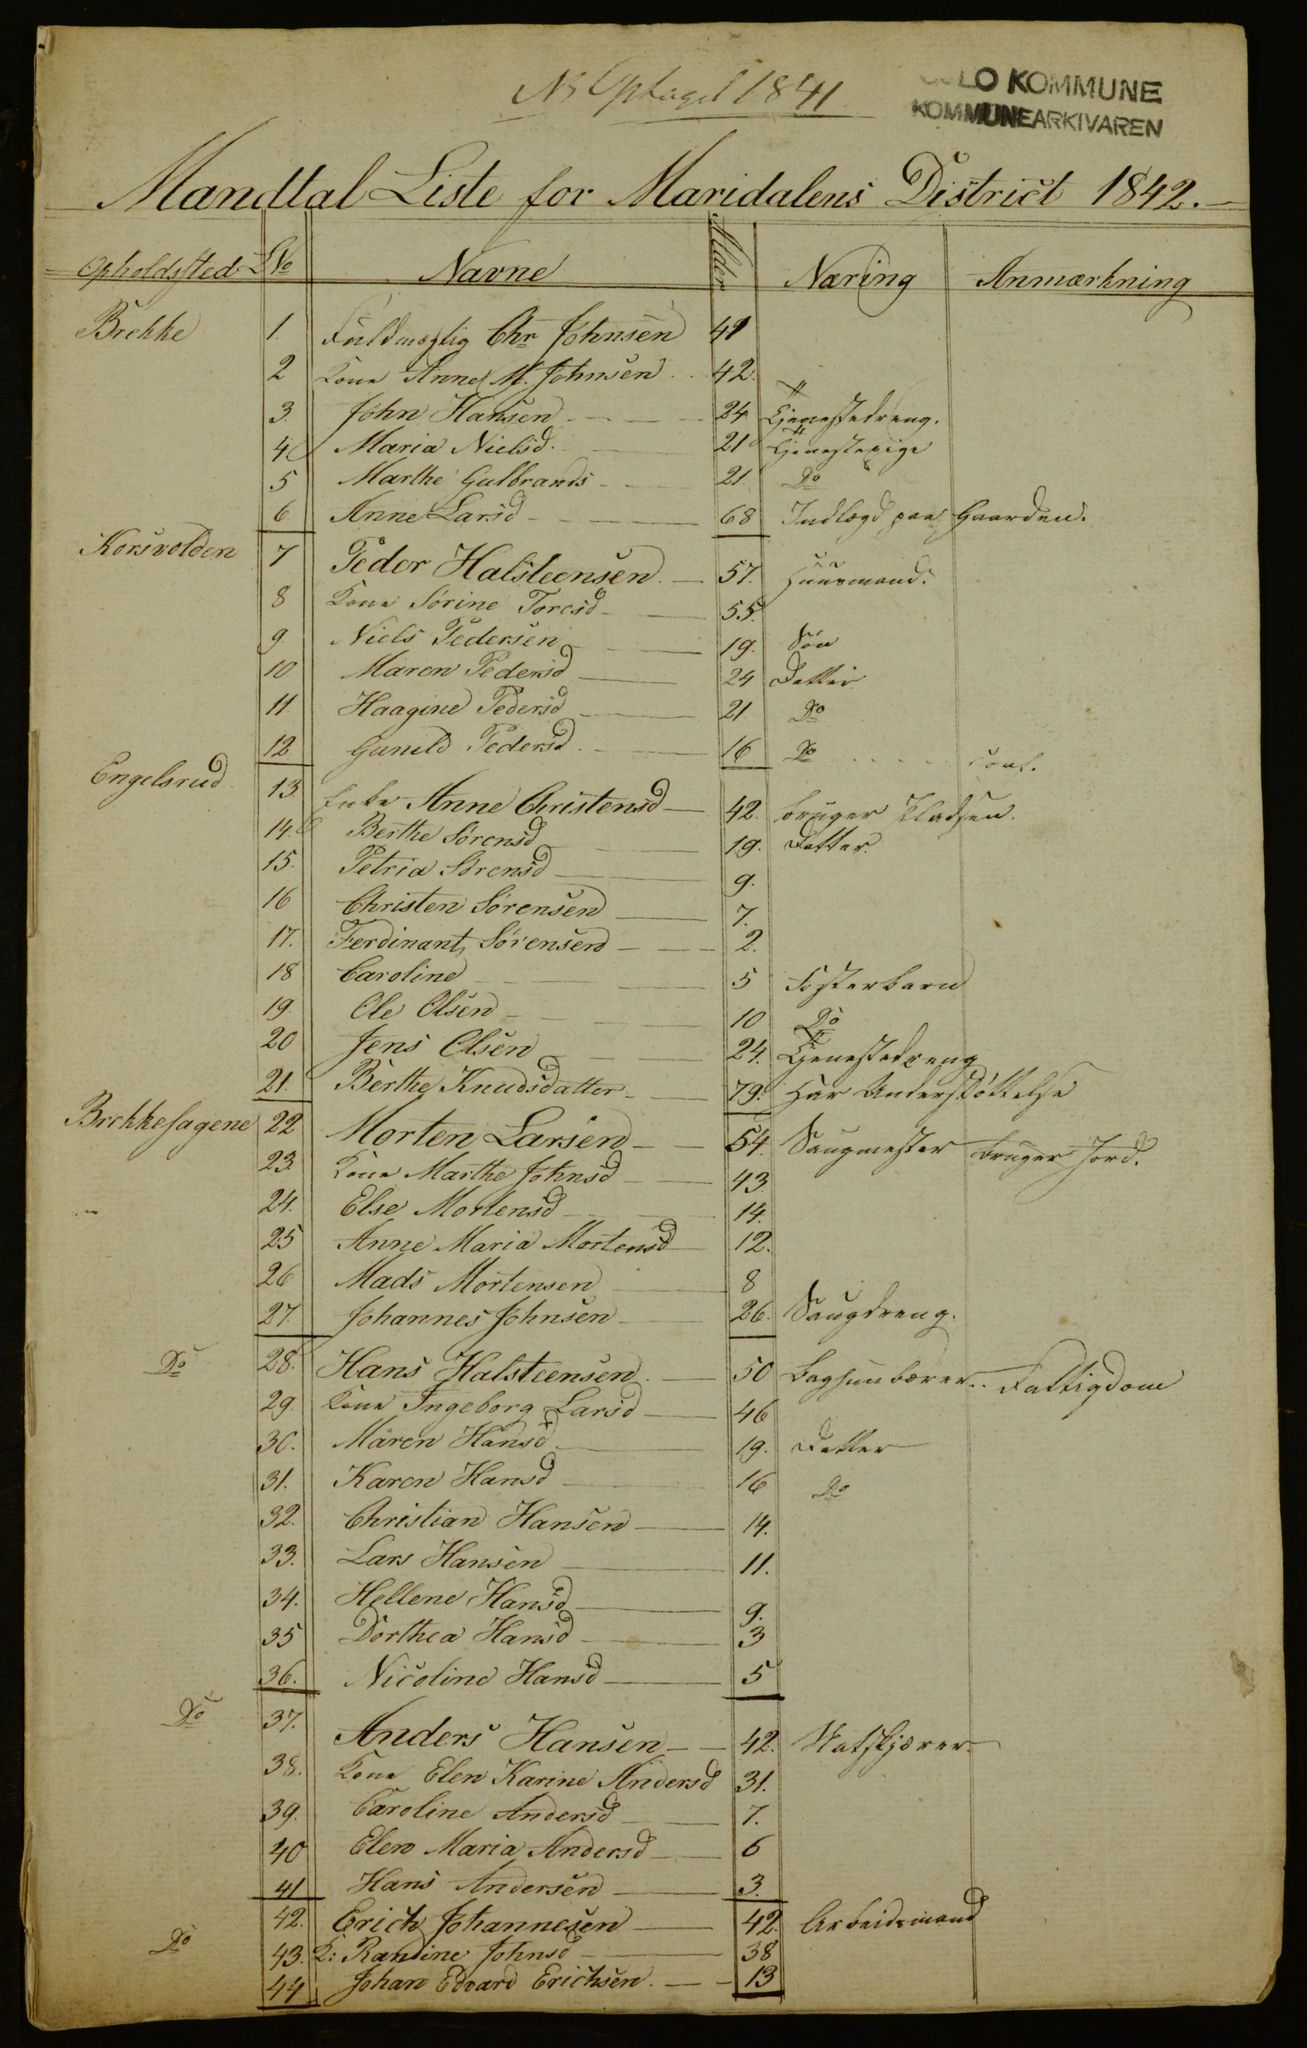 NB Optaget 1841
OSLO KOMMUNE
KOMMUNEARKIVAREN
Mandtal Liste for Maridalens District 1842.
Opholdssted No Navne Alder Næring Anmærkning
Brekke 1. Fuldmægtig Chr Johnsen 41
2 Kone Anne M. Johnsen 42.
3. John Hansen 24 Tjenestedreng.
4 Maria Nielsd. 21 Tjenestepige
5 Marthe Gulbrands 21 Do
6 Anne Larsd 68 Indlagd paa Gaarden.
Korsvolden 7 Peder Halsteensen. 57. Huusmand.
8 Kone Sørine Toresd 55.
9 Niels Pedersen 19. Søn
10 Maren Pedersd 24 Datter
11. Haagine Pedersd 21 Do
12 Gunild Pedersd. 16 Do conf.
Engelsrud 13 Enke Anne Christensd 42. bruger Pladsen.
14. Berthe Sørensd 19. Datter
15. Petria Sørensd 9.
16 Christen Sørensen 7.
17. Ferdinant Sørensen 2.
18 Caroline 5 Fosterbarn
19 Ole Olsen 10 Do
20 Jens Olsen 24. Tjenestedreng
21. Berthe Knudsdatter 79. Har Understøttelse
Brekkesagene 22 Morten Larsen 54. Saugmester bruger Jord.
23. Kone Marthe Johnsd 43
24. Else Mortensd 14.
25 Anne Maria Mortensd 12.
26 Mads Mortensen 8
27 Johannes Johnsen 26. Saugdreng.
Do 28. Hans Halsteensen. 50 Baghunbærer. Fattigdom
29. Kone Ingeborg Larsd 46
30. Maren Hansd 19. Datter
31. Karen Hansd 16 Do
32. Christian Hansen 14.
33. Lars Hansen 11.
34. Hellene Hansd 9.
35 Dorthea Hansd 3
36. Nicoline Hansd 5
Do 37. Anders Hansen 42. Natskjærer
38. Kone Elen Karine Andersd 31.
39. Caroline Andersd 7.
40 Elen Maria Andersd 6
41 Hans Andersen 3.
42. Erich Johannesen 42. Arbeidsmand
Do 43. K: Randine Johnsd 38
44 Johan Edvard Erichsen. 13